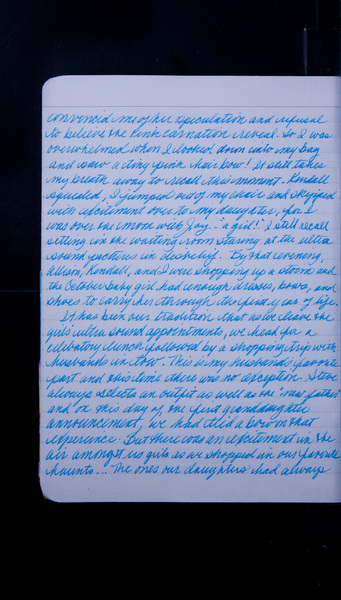 convinced me of her speculation and refusal
to believe the Pink Carnation reveal. So I was
overwhelmed when I looked down into my bag
and saw a tiny pink hair bow! It still takes
my breath away to recall this moment. Kendall
squealed, I jumped out of my chair and skipped
with excitement over to my daughter, for I
was over the moon with Joy - "a girl!" I still recall
sitting in the waiting room staring at the ultra
sound pictures in disbelief. By that evening,
Allison, Kendall, and I were shopping up a storm and
the October baby girl had enough dresses, bows, and
shoes to carry her through the first year of life.
It has been our tradition that as we leave the
girls' ultra sound appointments, we head for a
celebratory lunch followed by a shopping trip with
husbands in tow. This is my husband's favorite
part and this time there was no exception. Steve
always selects an outfit as well as the "new father"
and on this day of the first granddaughter
announcement, we had tied a bow on that
experience. But there was an excitement in the
air amongst us girls as we shopped in our favorite
haunts... The ones our daughters had always